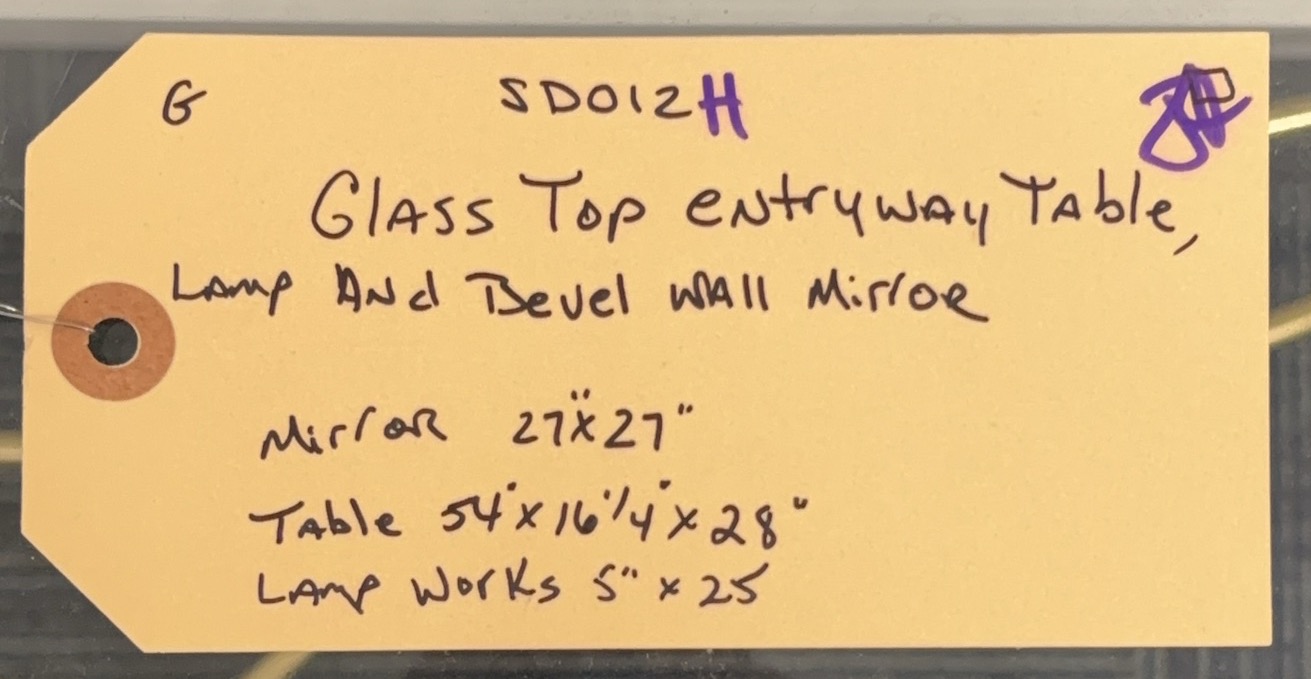 G SD012H
Glass Top entryway Table,
Lamp And Bevel Wall Mirror
Mirror 27"x27"
Table 54"x16 1/4"x28"
Lamp Works 5"x25